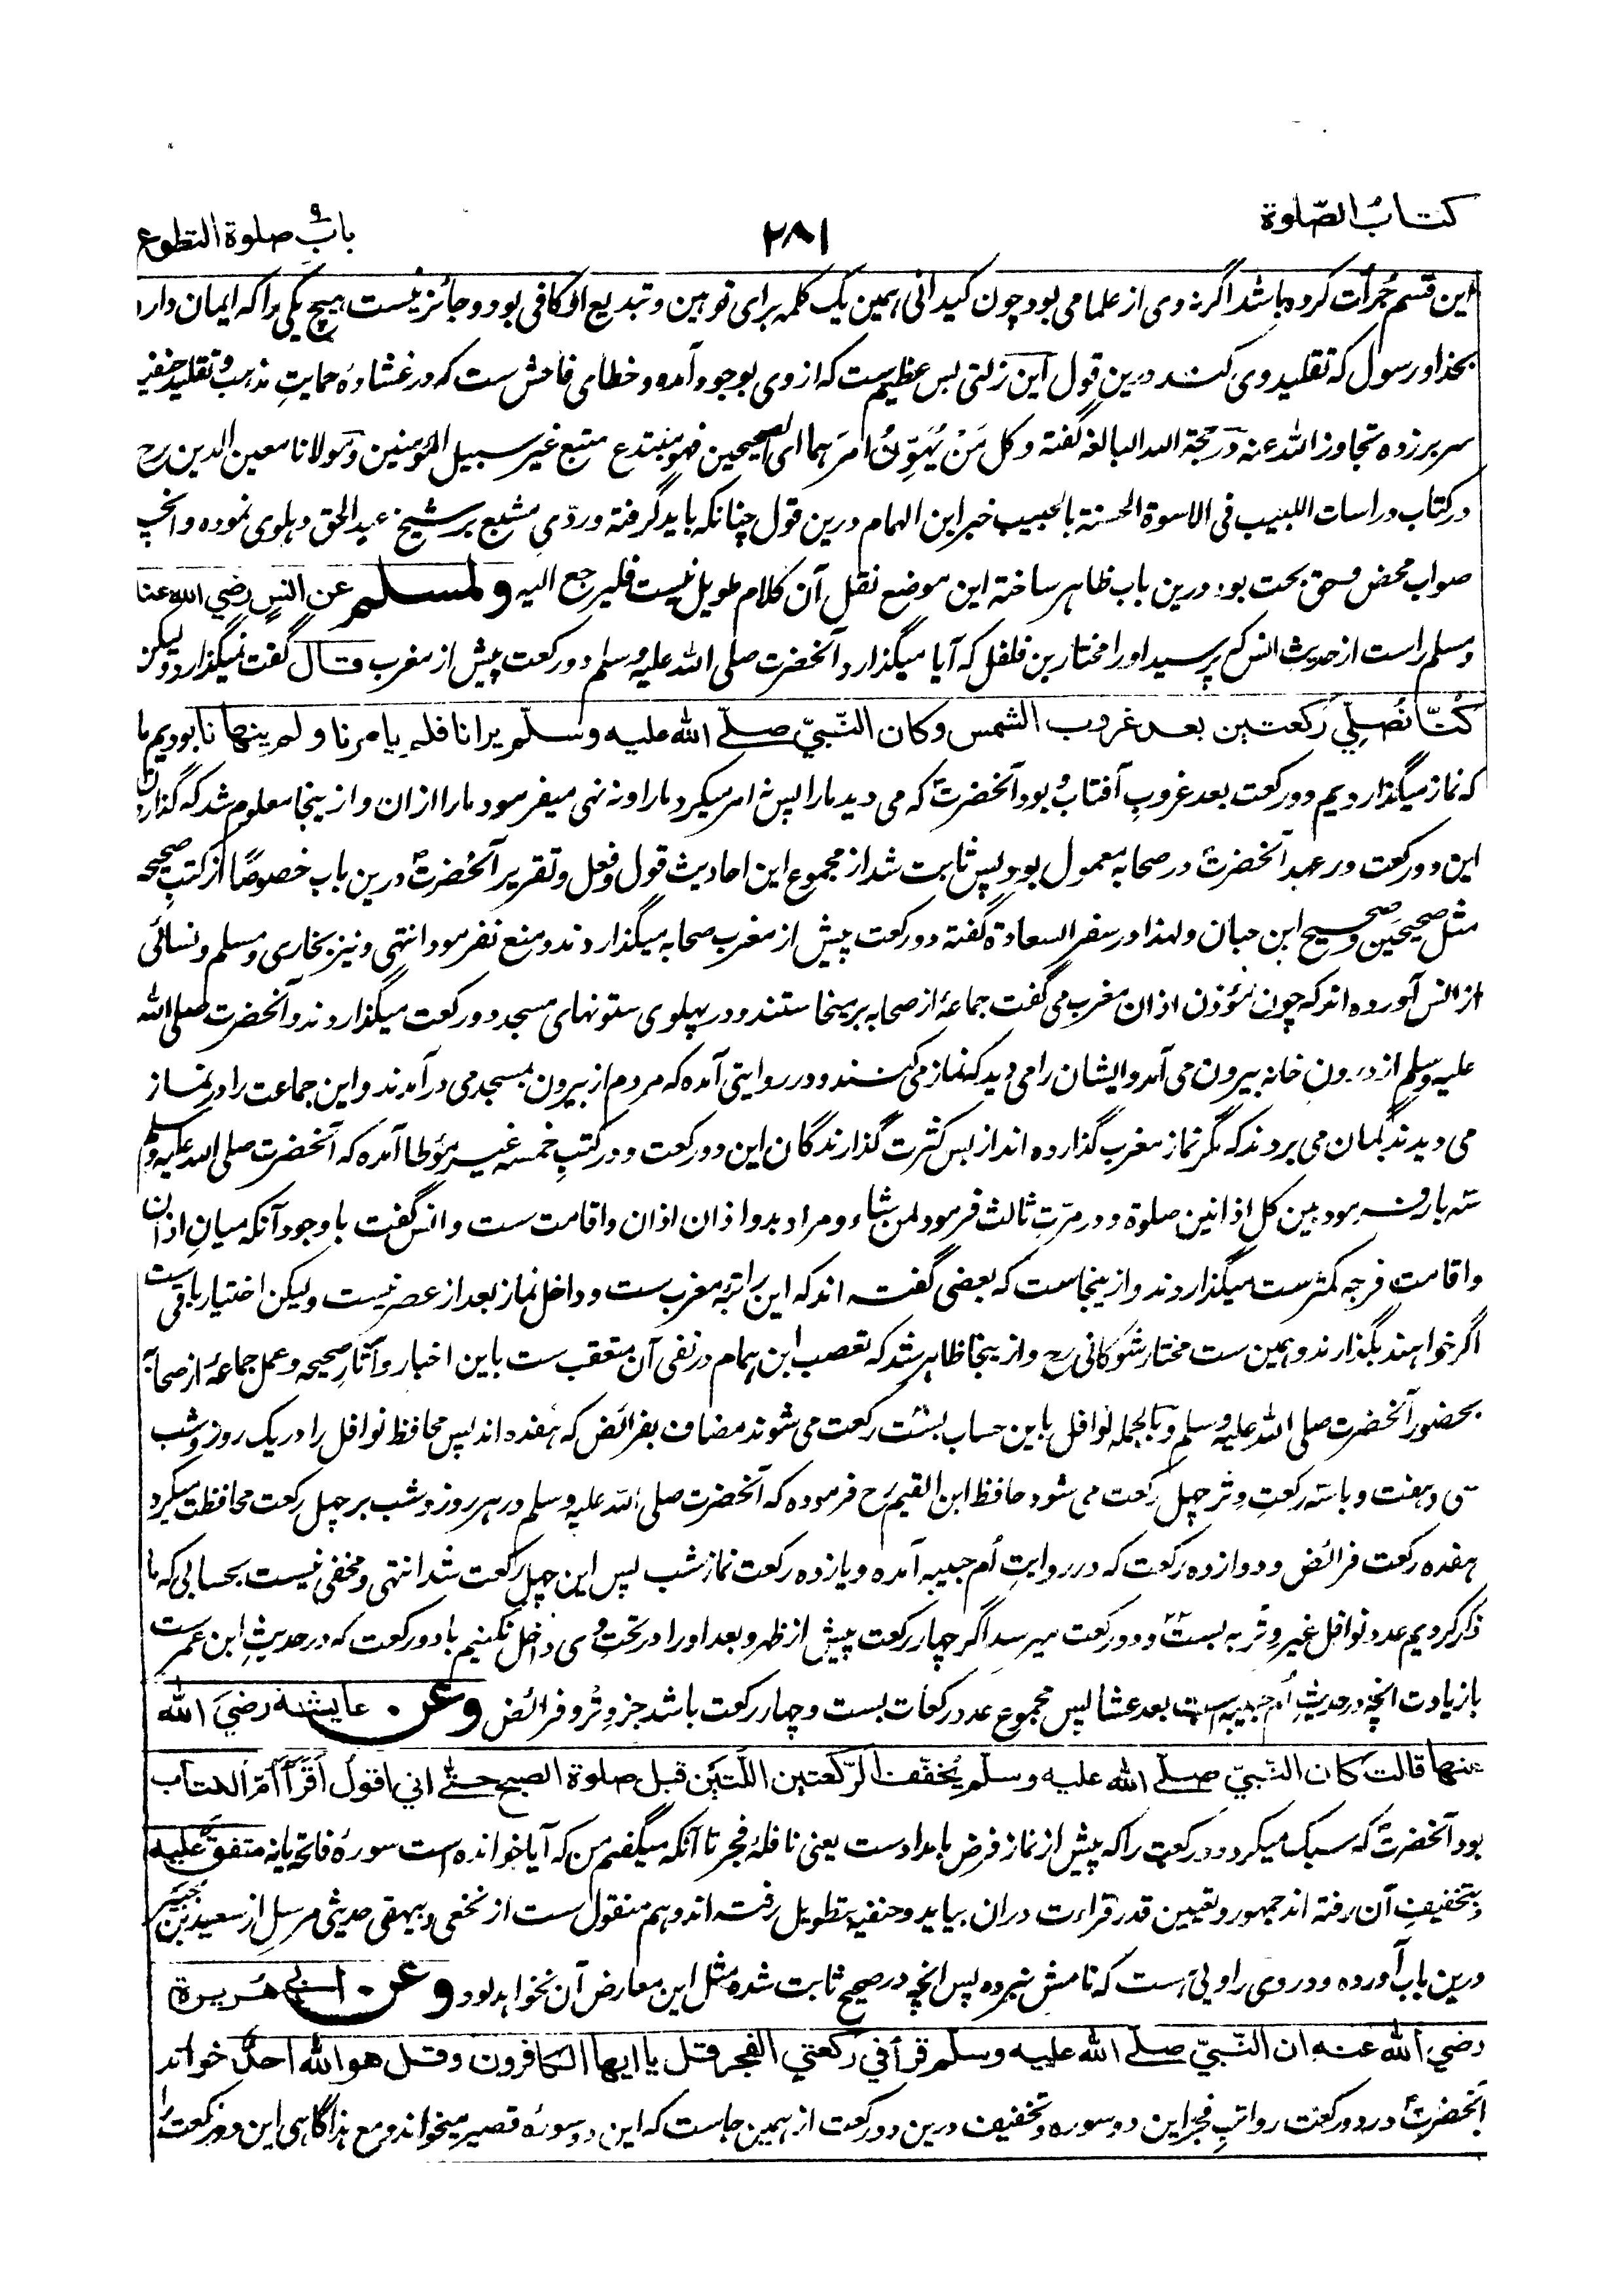 کتاب الصّلوة
۲۸۱
باب صلوة التطوع
این قسم جُرأت کرده باشد اگر نه وی از علما می بود چون کیدانی همین یک کلمه برای توهین و تبدیع او کافی بود و جائز نیست هیچ یکی را که ایمان دارد
بخدا و رسول که تقلید وی کند درین قول این زلتی بس عظیم ست که از وی بوجود آمده و خطای فاحش ست که در غشاوهٔ حمایتِ مذهب و تقلید حنفیه
سر بر زده تجاوز الله عنه و در حجة الله البالغه گفته و کل مَنْ یُهَوِّنُ امرَهما ای الصحیحین فهو مبتدع متبع غیر سبیل المؤمنین و مولانا معین الدین رح
در کتاب دراسات اللبیب فی الاسوة الحسنة بالحبیب خبر ابن الهمام درین قول چنانکه باید گرفته و ردّی مشبع بر شیخ عبدالحق دهلوی نموده و انچه
صواب محض و حق بحت بود درین باب ظاهر ساخته این موضع نقل آن کلام طویل نیست فلیرجع الیه ولمسلم عن انسٍ رضي الله عنه
و مسلم راست از حدیث انس که پرسید او را مختار بن فلفل که آیا میگذارد آنحضرت صلی الله علیه وسلم دو رکعت پیش از مغرب قال گفت نمیگذارد ولیکن
کُنّا نُصَلّي رَکعتین بعد غروب الشمس وکان النّبيّ صلّے الله علیه وسلّم یرانا فلم یامرنا ولم ینهانا بودیم ما
که نماز میگذاردیم دو رکعت بعد غروبِ آفتاب و بود آنحضرت که می دید مارا پس نه امر میکرد مارا و نه نهی میفرمود مارا ازان و ازینجا معلوم شد که گذاردن
این دو رکعت در عهد آنحضرت در صحابه معمول بود پس ثابت شد از مجموع این احادیث قول و فعل و تقریر آنحضرت درین باب خصوصًا از کتبِ صحیحه
مثل صحیحین و صحیح ابن حبان ولهذا در سفر السعادة گفته دو رکعت پیش از مغرب صحابه میگذاردند و منع نفرمود انتهی و نیز بخاری و مسلم و نسائی
از انس آورده اند که چون مؤذن اذان مغرب می گفت جماعهٔ از صحابه برمیخاستند و در پهلوی ستونهای مسجد دو رکعت میگذاردند و آنحضرت صلی الله
علیه وسلم از درونِ خانه بیرون می آمد و ایشان را می دید که نماز می کنند و در روایتی آمده که مردم از بیرون بمسجد می درآمدند و این جماعت را در نماز
می دیدند گمان می بردند که مگر نماز مغرب گذارده اند از بس کثرت گذارندگان این دو رکعت و در کتبِ خمسه غیر مؤطا آمده که آنحضرت صلی الله علیه وسلم
سه بار فرمود بین کل اذانین صلوة و در مرّتِ ثالث فرمود لمن شاء و مراد بدو اذان اذان و اقامت ست و انس گفت با وجود آنکه میانِ اذان
و اقامت فرجه کمتر ست میگذاردند و ازینجاست که بعضی گفته اند که این راتبهٔ مغرب ست و داخل نماز بعد از عصر نیست ولیکن اختیار باقی ست
اگر خواهند بگذارند و همین ست مختار شوکانی رح و ازینجا ظاهر شد که تعصب ابن همام در نفی آن متعقب ست باین اخبار و آثارِ صحیحه و عمل جماعهٔ از صحابه
بحضور آنحضرت صلی الله علیه وسلم و بالجمله نوافل باین حساب بست رکعت می شوند مضاف بفرائض که هفده اند پس محافظ نوافل را در یک روز و شب
سی و هفت و با سه رکعتِ وتر چهل رکعت می شود حافظ ابن القیم رح فرموده که آنحضرت صلی الله علیه وسلم در هر روز و شب بر چهل رکعت محافظت میکرد
هفده رکعت فرائض و دوازده رکعت که در روایتِ اُم حبیبه آمده و یازده رکعت نماز شب پس این چهل رکعت شد انتهی و مخفی نیست بحسابی که ما
ذکر کردیم عدد نوافل غیر وتر به بست و دو رکعت میرسد اگر چهار رکعت پیش از ظهر و بعد او را در تحتِ وی داخل نکنیم با دو رکعت که در حدیثِ ابن عمر ست
بازیادت انچه در حدیثِ اُم حبیبه است بعد عشا پس مجموع عدد رکعات بست و چهار رکعت باشد جز وتر و فرائض وعن عایشة رضيَ الله
عنها قالت کان النّبيّ صلّے الله علیه وسلم یُخفّف الرّکعتین اللّتین قبل صلوة الصبح حتّے اني اقول أقَرَأَ اُمّ الکتاب
بود آنحضرت که سبک میکرد دو رکعت را که پیش از نماز فرض بامداد ست یعنی نافلهٔ فجر تا آنکه میگفتم من که آیا خوانده است سورهٔ فاتحه یا نه متفقٌ علیه
و بتخفیفِ آن رفته اند جمهور و تعیین قدر قراءت دران بیاید و حنفیه بتطویل رفته اند و هم منقول ست از نخعی و بیهقی حدیثی مرسل از سعید بن جبیر
درین باب آورده و در وی راویی ست که نامش نبرده پس انچه در صحیح ثابت شده مثل این معارض آن نخواهد بود وعن ابي هُریرة
رضي الله عنه ان النّبيّ صلّے الله علیه وسلم قرأ في رکعتي الفجر قل یا ایها الکافرون وقل هو الله احدٌ خواند
آنحضرت در دو رکعت رواتبِ فجر این دو سوره و تخفیف درین دو رکعت از همین جاست که این دو سورهٔ قصیر میخواند و مع هذا گاهی این دو رکعت را